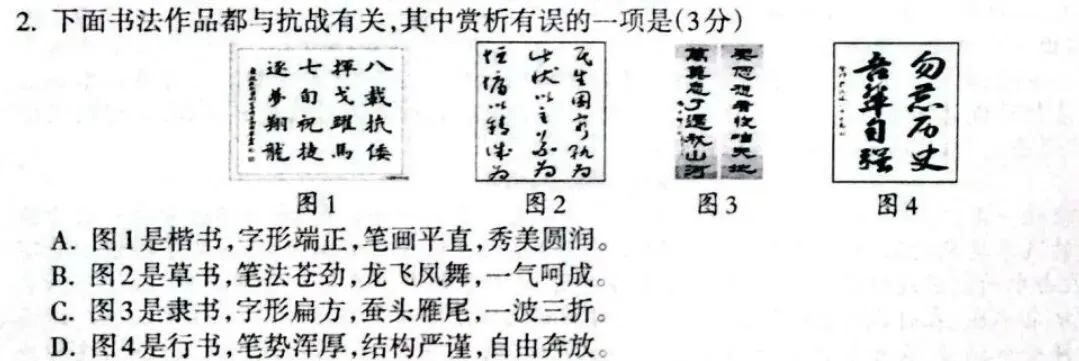 2. 下面书法作品都与抗战有关,其中赏析有误的一项是(3分)
八载抗倭
挥戈躍馬
七旬祝捷
逐夢翔龍
勿忘历史
吾辈自强
图1
图2
图3
图4
A. 图1是楷书,字形端正,笔画平直,秀美圆润。
B. 图2是草书,笔法苍劲,龙飞凤舞,一气呵成。
C. 图3是隶书,字形扁方,蚕头雁尾,一波三折。
D. 图4是行书,笔势浑厚,结构严谨,自由奔放。